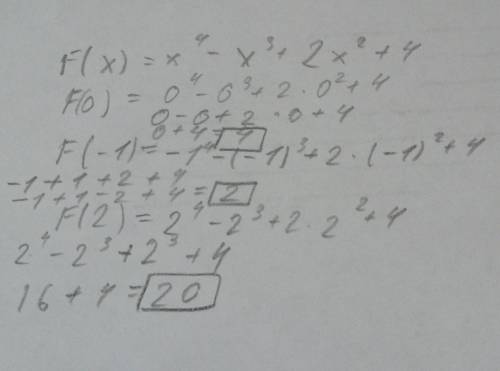 F(x) = x⁴ - x³ + 2x² + 4
F(0) = 0⁴ - 0³ + 2 · 0² + 4
0 - 0 + 2 · 0 + 4
0 + 4 = 4
F(-1) = -1⁴ - (-1)³ + 2 · (-1)² + 4
-1 + 1 + 2 + 4
-1 + 1 - 2 + 4 = 2
F(2) = 2⁴ - 2³ + 2 · 2² + 4
2⁴ - 2³ + 2³ + 4
16 + 4 = 20